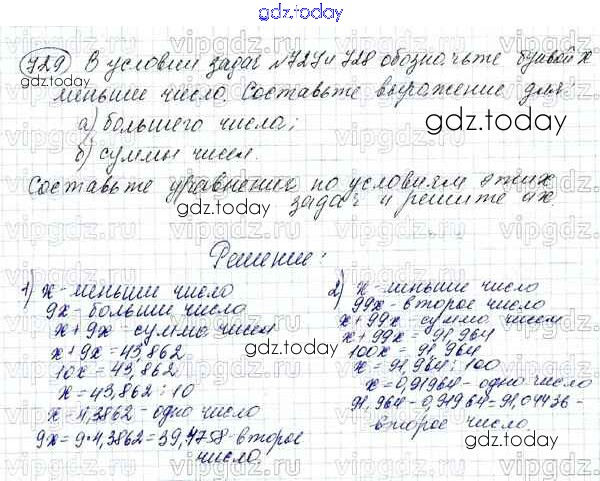 gdz.today
729 В условии задач №727 и 728 обозначьте буквой х
меньшее число. Составьте выражение для:
а) большего числа;
gdz.today
б) суммы чисел.
Составьте уравнение по условиям этих
gdz.today
задач и решите их
Решение:
1) х - меньшие число
9х - больши числа
х + 9х - сумма чисел
х + 9х = 43,862
gdz.today
10х = 43,862
х = 43,862 : 10
х = 4,3862 - одно число
9х = 9·4,3862 = 39,4758 - второе
число
2) х - меньшие число
99х - второе число
х + 99х - сумма чисел
х + 99х = 91,964
100х = 91,964
х = 91,964 : 100
х = 0,91964 - одно число
91,964 - 0,91964 = 91,04436 -
второе число.
gdz.today